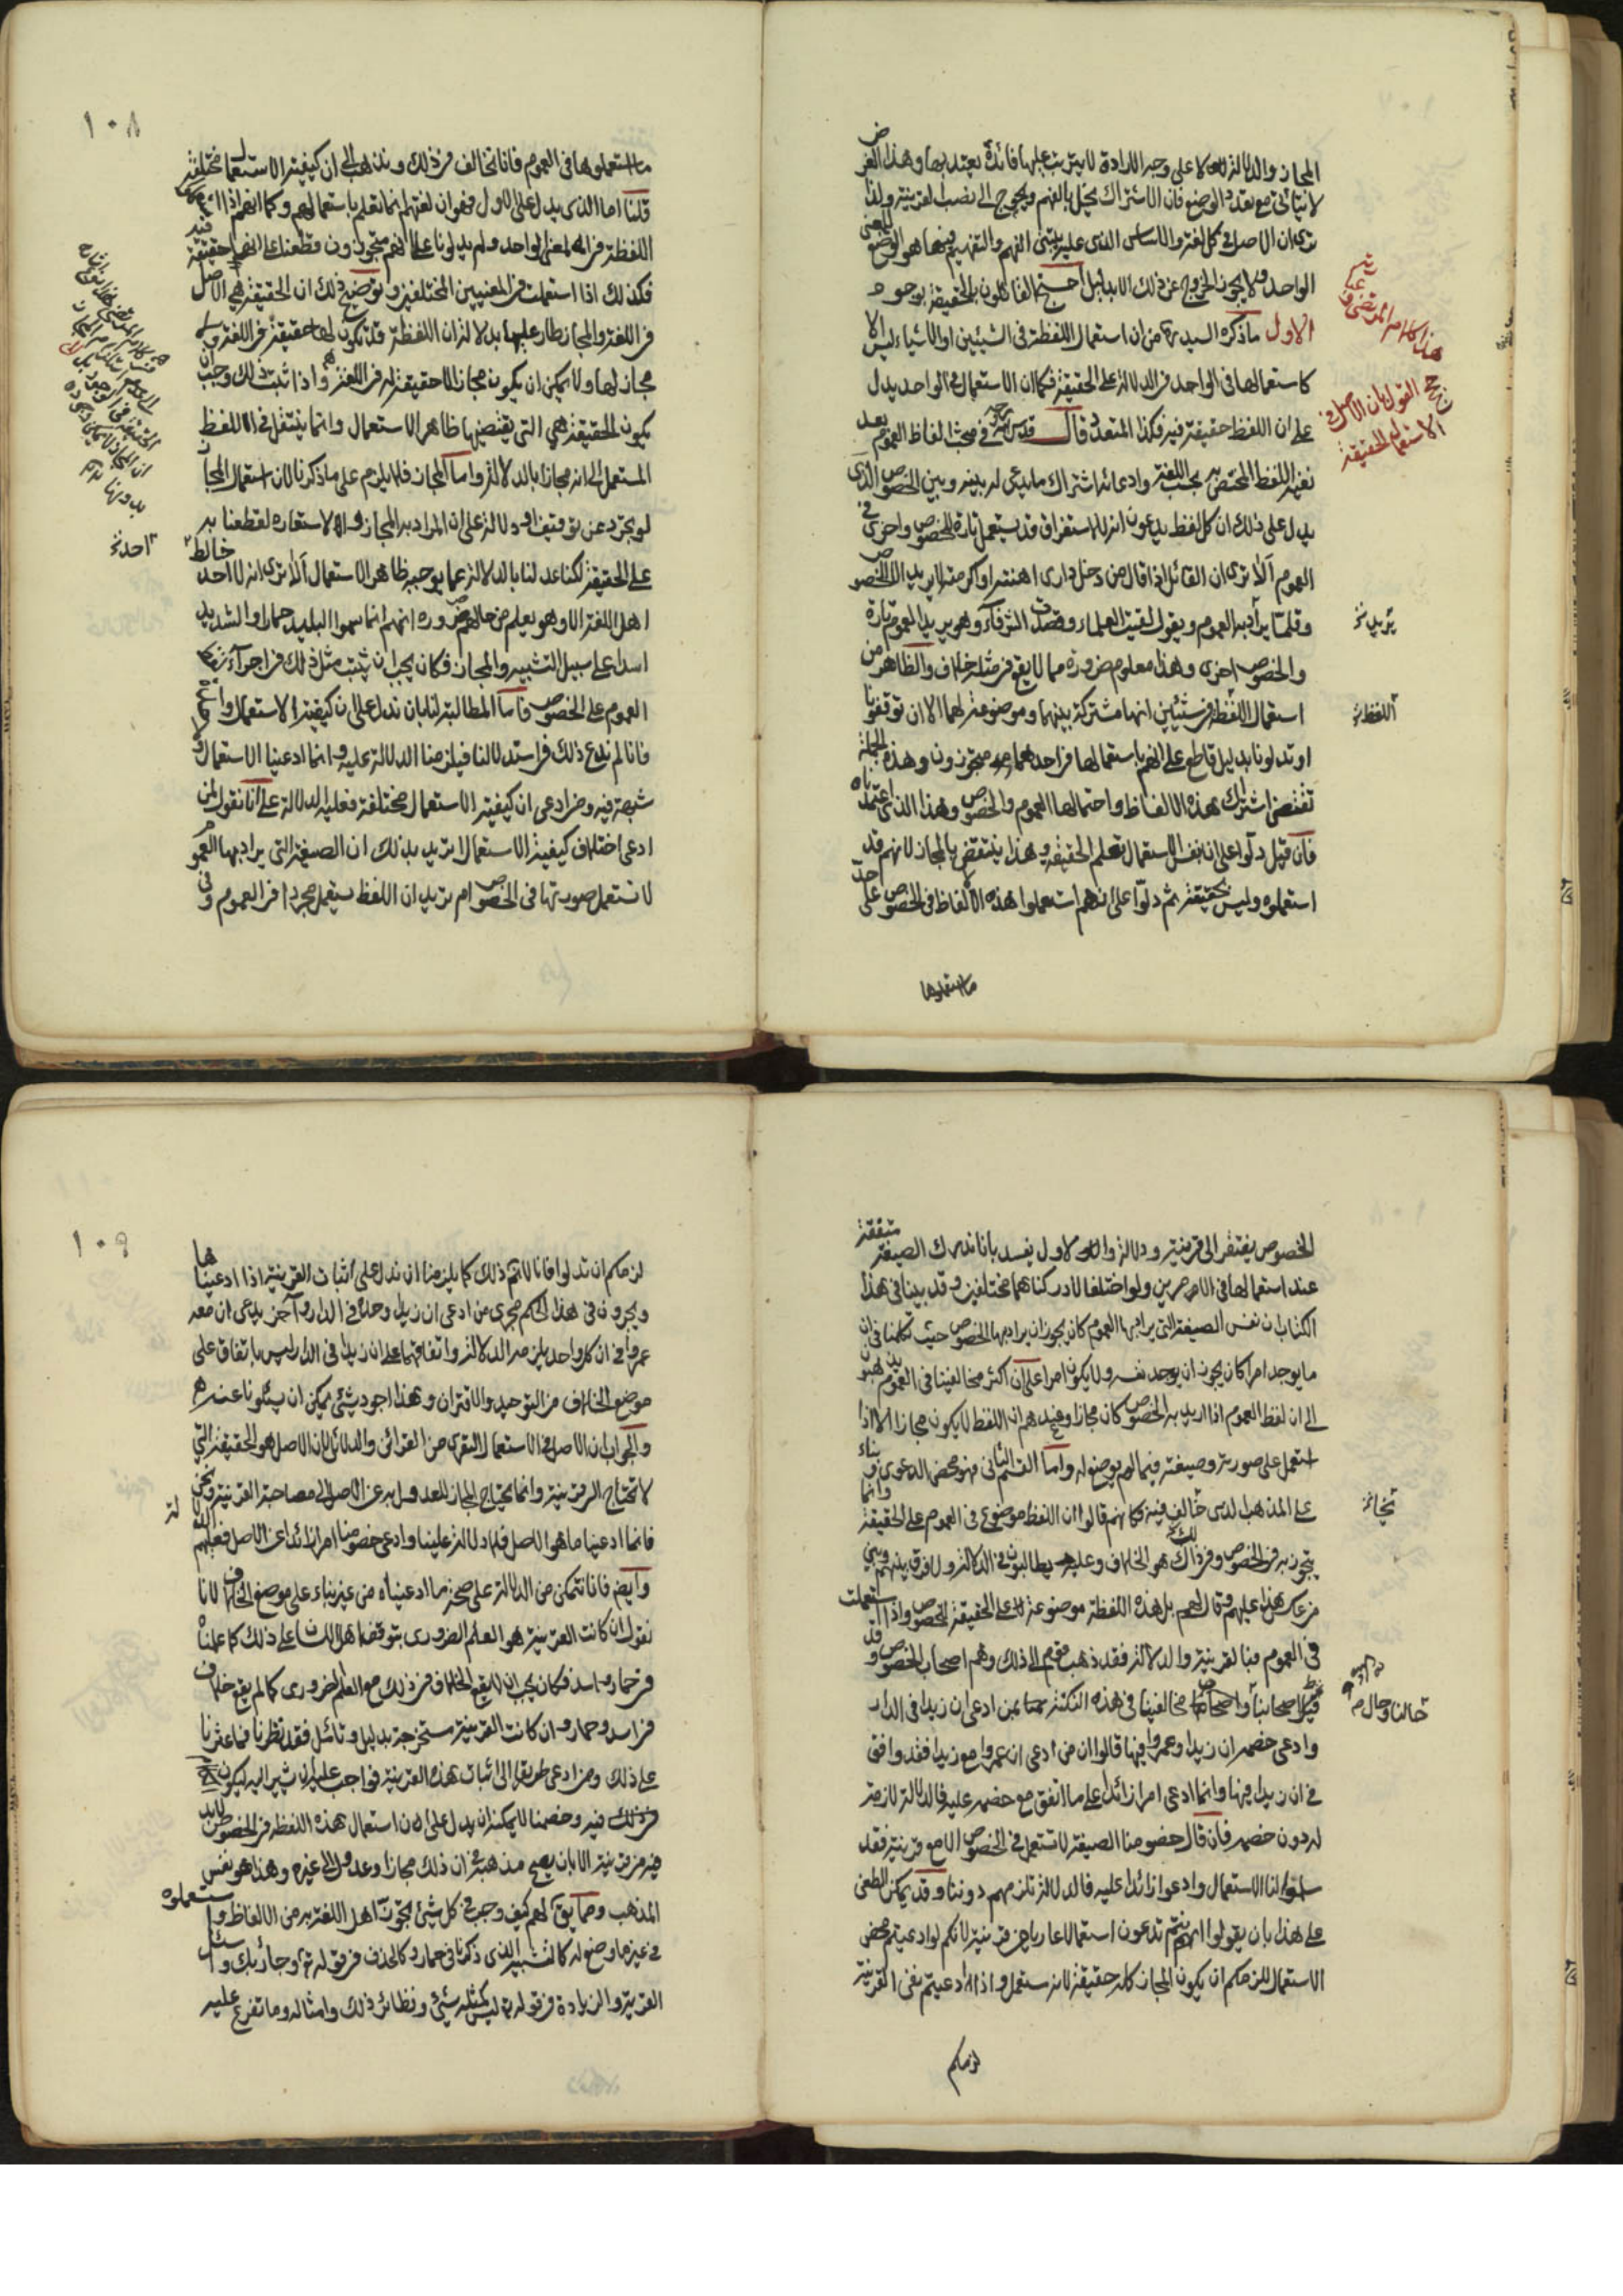 المجاز والدلالة لا على وجه الارادة لا يترتب عليها فائدة يعتد بها وهذا الغرض
لا يتأتى مع تعدد الوضع فان الاشتراك يخل بالفهم ويحوج الى نصب القرينة ولذا
ترى ان الاصل في كل لغة والاساس الذى عليه يبتنى الفهم والتفهيم فيها هو الوضع للمعنى
الواحد ولا يجوز الخروج عن ذلك الا بدليل احتج القائلون بالحقيقة بوجوه
الاول ما ذكره السيد ره من ان استعمال اللفظة في الشيئين او الاشياء ليس الا
كاستعمالها في الواحد في الدلالة على الحقيقة فكما ان الاستعمال في الواحد يدل
على ان اللفظ حقيقة فيه فكذا المتعدد قال قدس سره في مبحث الفاظ العموم بعد
نفيه اللفظ المختص به بحسب اللغة وادعائه اشتراك ما يدعى له بينه وبين الخصوص الذى
يدل على ذلك ان كل لفظ يدعون انه للاستغراق قد يستعمل تارة للخصوص واخرى في
العموم ألا ترى ان القائل اذا قال من دخل دارى اهنته او اكرمته لا يريد الا الخصوص
وقلما يراد به العموم ويقول لقيت العلماء وقصدت الشرفاء وهو يريد العموم تارة
والخصوص اخرى وهذا معلوم ضرورة مما لا يقع في مثله خلاف والظاهر من
استعمال اللفظة في شيئين انها مشتركة بينهما وموضوعة لهما الا ان توقفونا
او تدلونا بدليل قاطع على انهم باستعمالها في احدهما متجوزون وهذه الجملة
تقتضى اشتراك هذه الالفاظ واحتمالها العموم والخصوص وهذا الذى اعتمدناه
فان قيل دلوا على ان نفس الاستعمال تعلم الحقيقة وهذا ينتقض بالمجاز لانهم قد
استعملوه وليس بحقيقة ثم دلوا على انهم استعملوا هذه الالفاظ في الخصوص على حد
ما استعملوها
هذا كلام المرتضى ره
حجج القول بان الاصل في
الاستعمال الحقيقة
يريد
اللفظة
١٠٨
ما استعملوها في العموم فانا نخالف في ذلك ونذهب الى ان كيفية الاستعمال مختلفة
قلنا اما الذى يدل على الاول فهو ان لغتهم انما تعلم باستعمالهم وكما انهم اذا استعملوا
اللفظة في المعنى الواحد ولم يدلونا على انهم متجوزون قطعنا على انها حقيقة فيه
فكذلك اذا استعملت في المعنيين المختلفين وتوضيح ذلك ان الحقيقة هي الاصل
في اللغة والمجاز طار عليها بدلالة ان اللفظة قد تكون لها حقيقة في اللغة ولا
مجاز لها ولا يمكن ان يكون مجاز لا حقيقة له في اللغة واذا ثبت ذلك وجب ان
يكون الحقيقة هي التي يقتضيها ظاهر الاستعمال وانما ينتقل في اللفظ
المستعمل الى انه مجاز بالدلالة واما المجاز فلا يلزم على ما ذكرنا لان استعمال المجاز
لو تجرد عن توقيف او دلالة على ان المراد به المجاز والاستعارة لقطعنا به
على الحقيقة لكنا عدلنا بالدلالة عما يوجبه ظاهر الاستعمال ألا ترى انه لا احد خالط
اهل اللغة الا وهو يعلم من حالهم ضرورة انهم انما سموا البليد حمارا والشديد
اسدا على سبيل التشبيه والمجاز فكان يجب ان يثبت مثل ذلك في اجراء
العموم على الخصوص فاما المطالبة لنا بان ندل على ان كيفية الاستعمال واحدة
فانا لم ندع ذلك في استدلالنا فيلزمنا الدلالة عليه وانما ادعينا الاستعمال ولا
شبهة فيه ومن ادعى ان كيفية الاستعمال مختلفة فعليه الدلالة على انا نقول لمن
ادعى اختلاف كيفية الاستعمال تريد بذلك ان الصيغة التي يراد بها العموم
لا تستعمل صورتها في الخصوص ام تريد ان اللفظ يستعمل مجردا في العموم وفي
احد
الخصوص يفتقر الى قرينة ودلالة والاول يفسد بانا ندرك الصيغة متفقة
عند استعمالها في الامرين ولو اختلفا لادركناهما مختلفين وقد بينا في هذا
الكتاب ان نفس الصيغة التي يراد بها العموم كان يجوز ان يراد بها الخصوص حيث تكلمنا في ان
ما يوجد امرا كان يجوز ان يوجد نفسه ولا يكون امرا على ان اكثر مخالفينا في العموم يذهبون
الى ان لفظ العموم اذا اريد به الخصوص كان مجازا وعندهم ان اللفظ لا يكون مجازا الا اذا
استعمل على صورته وصيغته فيما لم يوضع له واما القسم الثانى فهو محض الدعوى وبناء
على المذهب الذى خالف فيه كانهم قالوا ان اللفظ موضوع في العموم على الحقيقة وانما
يتجوز به في الخصوص وفي ذلك هو الخلاف وعليه يطالبون في الدلالة ولا فرق بينهم وبين
من عكس هذا عليهم وقال لهم بل هذه اللفظة موضوعة على الحقيقة للخصوص واذا استعملت
في العموم فبالقرينة والدلالة فقد ذهب قوم الى ذلك وهم اصحاب الخصوص وقد
مثل اصحابنا حالنا وحال مخالفينا في هذه النكتة بمن ادعى ان زيدا في الدار
وادعى خصمه ان زيدا وعمروا فيها قالوا ان من ادعى ان عمروا مع زيد فقد وافق
في ان زيدا فيها وانما ادعى امرا زائدا على ما اتفق مع خصمه عليه فالدلالة لازمة
له دون خصمه فان قال خصومنا الصيغة لا تستعمل في الخصوص الا مع قرينة فقد
سلموا لنا الاستعمال وادعوا زائدا عليه فالدلالة تلزمهم دوننا وقد يمكن الطعن
على هذا بان يقولوا انتم تدعون استعمالا عاريا من قرينة لانكم لو ادعيتم محض
الاستعمال للزمكم ان يكون المجاز كله حقيقة لانه مستعمل واذا ادعيتم نفى القرينة
لزمكم
حالنا وحال
١٠٩
لزمكم ان تدلوا فانا لا نسلم ذلك كما يلزمنا ان ندل على اثبات القرينة اذا ادعيناها
ويجرون في هذا الحكم مجرى من ادعى ان زيدا وحده في الدار وآخر يدعى ان معه
عمروا في ان كل واحد يلزمه الدلالة واتفاقهما على ان زيدا في الدار ليس باتفاق على
موضع الخلاف من التوحيد والاقتران وهذا اجود شئ يمكن ان يسئلونا عنه
والجواب ان الاصل في الاستعمال التعرى من القرائن والدلائل لان الاصل هو الحقيقة التي
لا تحتاج الى قرينة وانما يحتاج المجاز للعدول به عن الاصل الى مصاحبة القرينة ونحن
فانما ادعينا ما هو الاصل فلا دلالة علينا وادعى خصومنا امرا زائدا على الاصل فعليهم الدلالة
وايض فانا نتمكن من الدلالة على صحة ما ادعيناه من غير بناء على موضع الخلاف لانا
نقول ان كانت القرينة هو العلم الضرورى بتوقف اهل اللسان على ذلك كما علمناه
في حمار واسد فكان يجب ان لا يقع الخلاف في ذلك مع العلم الضرورى كما لم يقع خلاف
في اسد وحمار وان كانت القرينة مستخرجة بدليل وتأمل فقد نظرنا فما عثرنا
على ذلك ومن ادعى طريقا الى اثبات هذه القرينة فواجب عليه ان يشير اليه ليكون
في ذلك فيه وخصمنا لا يمكنه ان يدل على ان استعمال هذه اللفظة في الخصوص لابد
فيه من قرينة الا بان يصح مذهبه في ان ذلك مجازا وعدول الى غيره وهذا هو نفس
المذهب ومما يق لهم كيف وجب في كل شئ تجوز اهل اللغة به من الالفاظ واستعملوه
في غير ما وضع له كالتشبيه الذى ذكرنا في حمار وكالحذف في قوله تع وجاء ربك واسئل
القرية والزيادة في قوله تع ليس كمثله شئ ونظائر ذلك وامثاله وما تفرع عليه